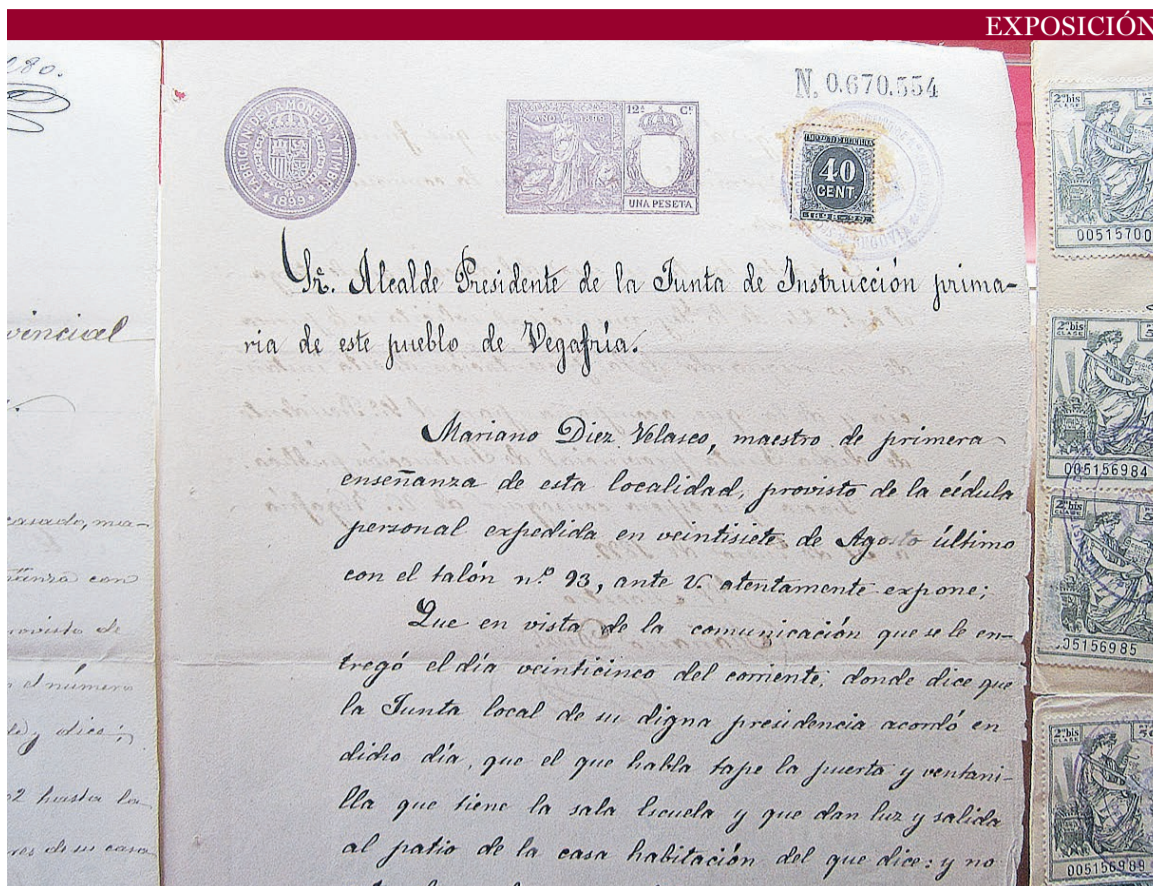 EXPOSICIÓN
N. 0.670.554
FABRICA NACIONAL DE LA MONEDA Y TIMBRE
1899
12ª Cl.
UNA PESETA
IMPUESTO DE GUERRA
40
CENT
1898-99
Sr. Alcalde Presidente de la Junta de Instrucción prima-
ria de este pueblo de Vegafría.
Mariano Diez Velasco, maestro de primera
enseñanza de esta localidad, provisto de la cédula
personal expedida en veintisiete de Agosto último
con el talón n.º 93, ante V. atentamente expone;
Que en vista de la comunicación que se le en-
tregó el día veinticinco del corriente; donde dice que
la Junta local de su digna presidencia acordó en
dicho día, que el que habla tape la puerta y ventani-
lla que tiene la sala Escuela y que dan luz y salida
al patio de la casa habitación del que dice: y no
280.
vincial
casado, ma-
ñanza con
rovisto de
n el número
y dice;
2 hasta la
res de su casa
2ª bis
CLASE
0051570
2ª bis
CLASE
005156984
005156985
2ª bis
CLASE
005156989